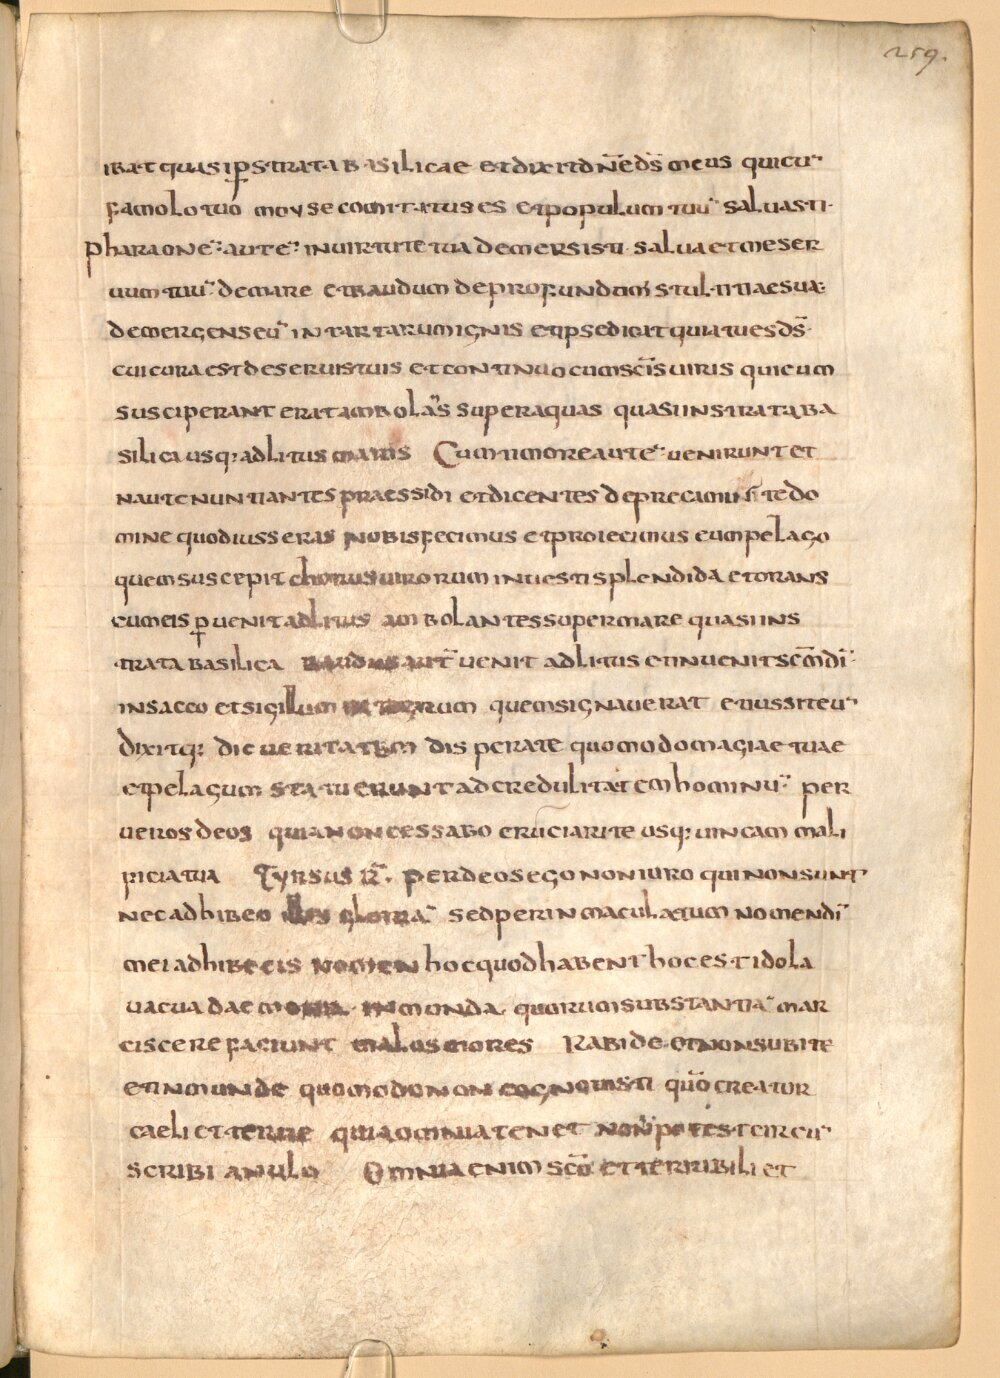 259.
ibat quasi p̱ strata basilicae et dixit dn̄e ds̄ meus qui cū
famolo tuo moyse comitatus es et populum tuū salvasti·
pharaonē: autē: in virtute tua demersisti· salva et me ser
uum tuū de mare et baudum de profundum stultitiae suae
demergens eū in tartarum ignis et ipse dicat quia tu es ds̄·
cui cura est de servis tuis et continuo cum sc̄is viris qui eum
susciperant erat ambolans super aquas quasi in strata ba
silica usq; ad litus maris Cum timore autē: venirunt et
nautę nuntiantes praessidi et dicentes deprecamur te do
mine quod iusseras nobis fecimus et proiecimus eum pelago
quem suscepit chorus virorum in vesti splendida et orans
cum eis p̱venit ad litus ambolantes super mare quasi in s
trata basilica baudus aut̄ venit ad litus et invenit sc̄m dī·
in sacco et sigillum rum quem signaverat et iussit eū
dixitq; dic veritatem disperate quomodo magiae tuae
et pelagum statuerunt ad credulitatem hominū· per
veros deos quia non cessabo cruciari te usq; vincam mali
ficia tua Tyrsus R̄. Per deos ego non iuro qui non sunt
nec adhibeo gloriā sed per inmaculatum nomen dī
mei adhibetis nomen hoc quod habent hoc est idola
vacua daemonia inmunda· quorum substantiā mar
ciscere faciunt malos mores Rabide et non subite
et inmunde quomodo non cognovisti quō creator
caeli et terre quia omnia tenet non potest circū
scribi anulo Omnia enim sc̄o et terribili et